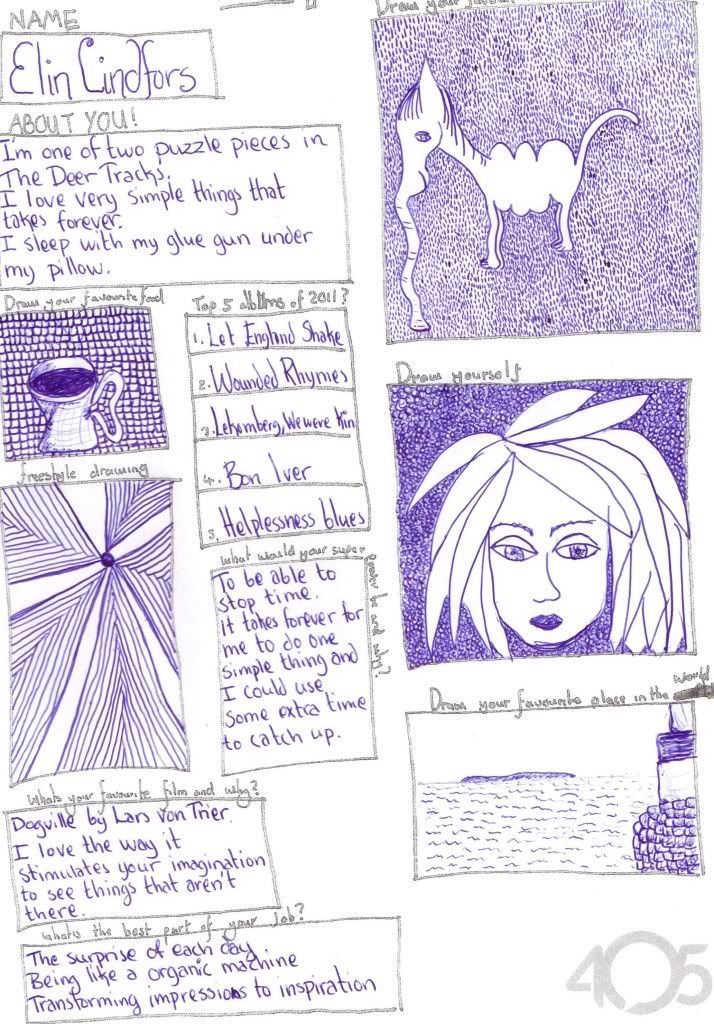 NAME
Elin Lindfors
ABOUT YOU!
I'm one of two puzzle pieces in
The Deer Tracks.
I love very simple things that
takes forever.
I sleep with my glue gun under
my pillow.
Draw your favourite food
Top 5 albums of 2011?
1. Let England Shake
2. Wounded Rhymes
3. Lekomberg, We were Kin
4. Bon Iver
5. Helplessness blues
freestyle drawing
What would your super
power be and why?
To be able to
stop time.
It takes forever for
me to do one
simple thing and
I could use
some extra time
to catch up.
Whats your favourite film and why?
Dogville by Lars von Trier.
I love the way it
stimulates your imagination
to see things that aren't
there.
whats the best part of your job?
The surprise of each day
Being like a organic machine
Transforming impressions to inspiration
Draw your favour
Draw yourself
Draw your favourite place in the world
405